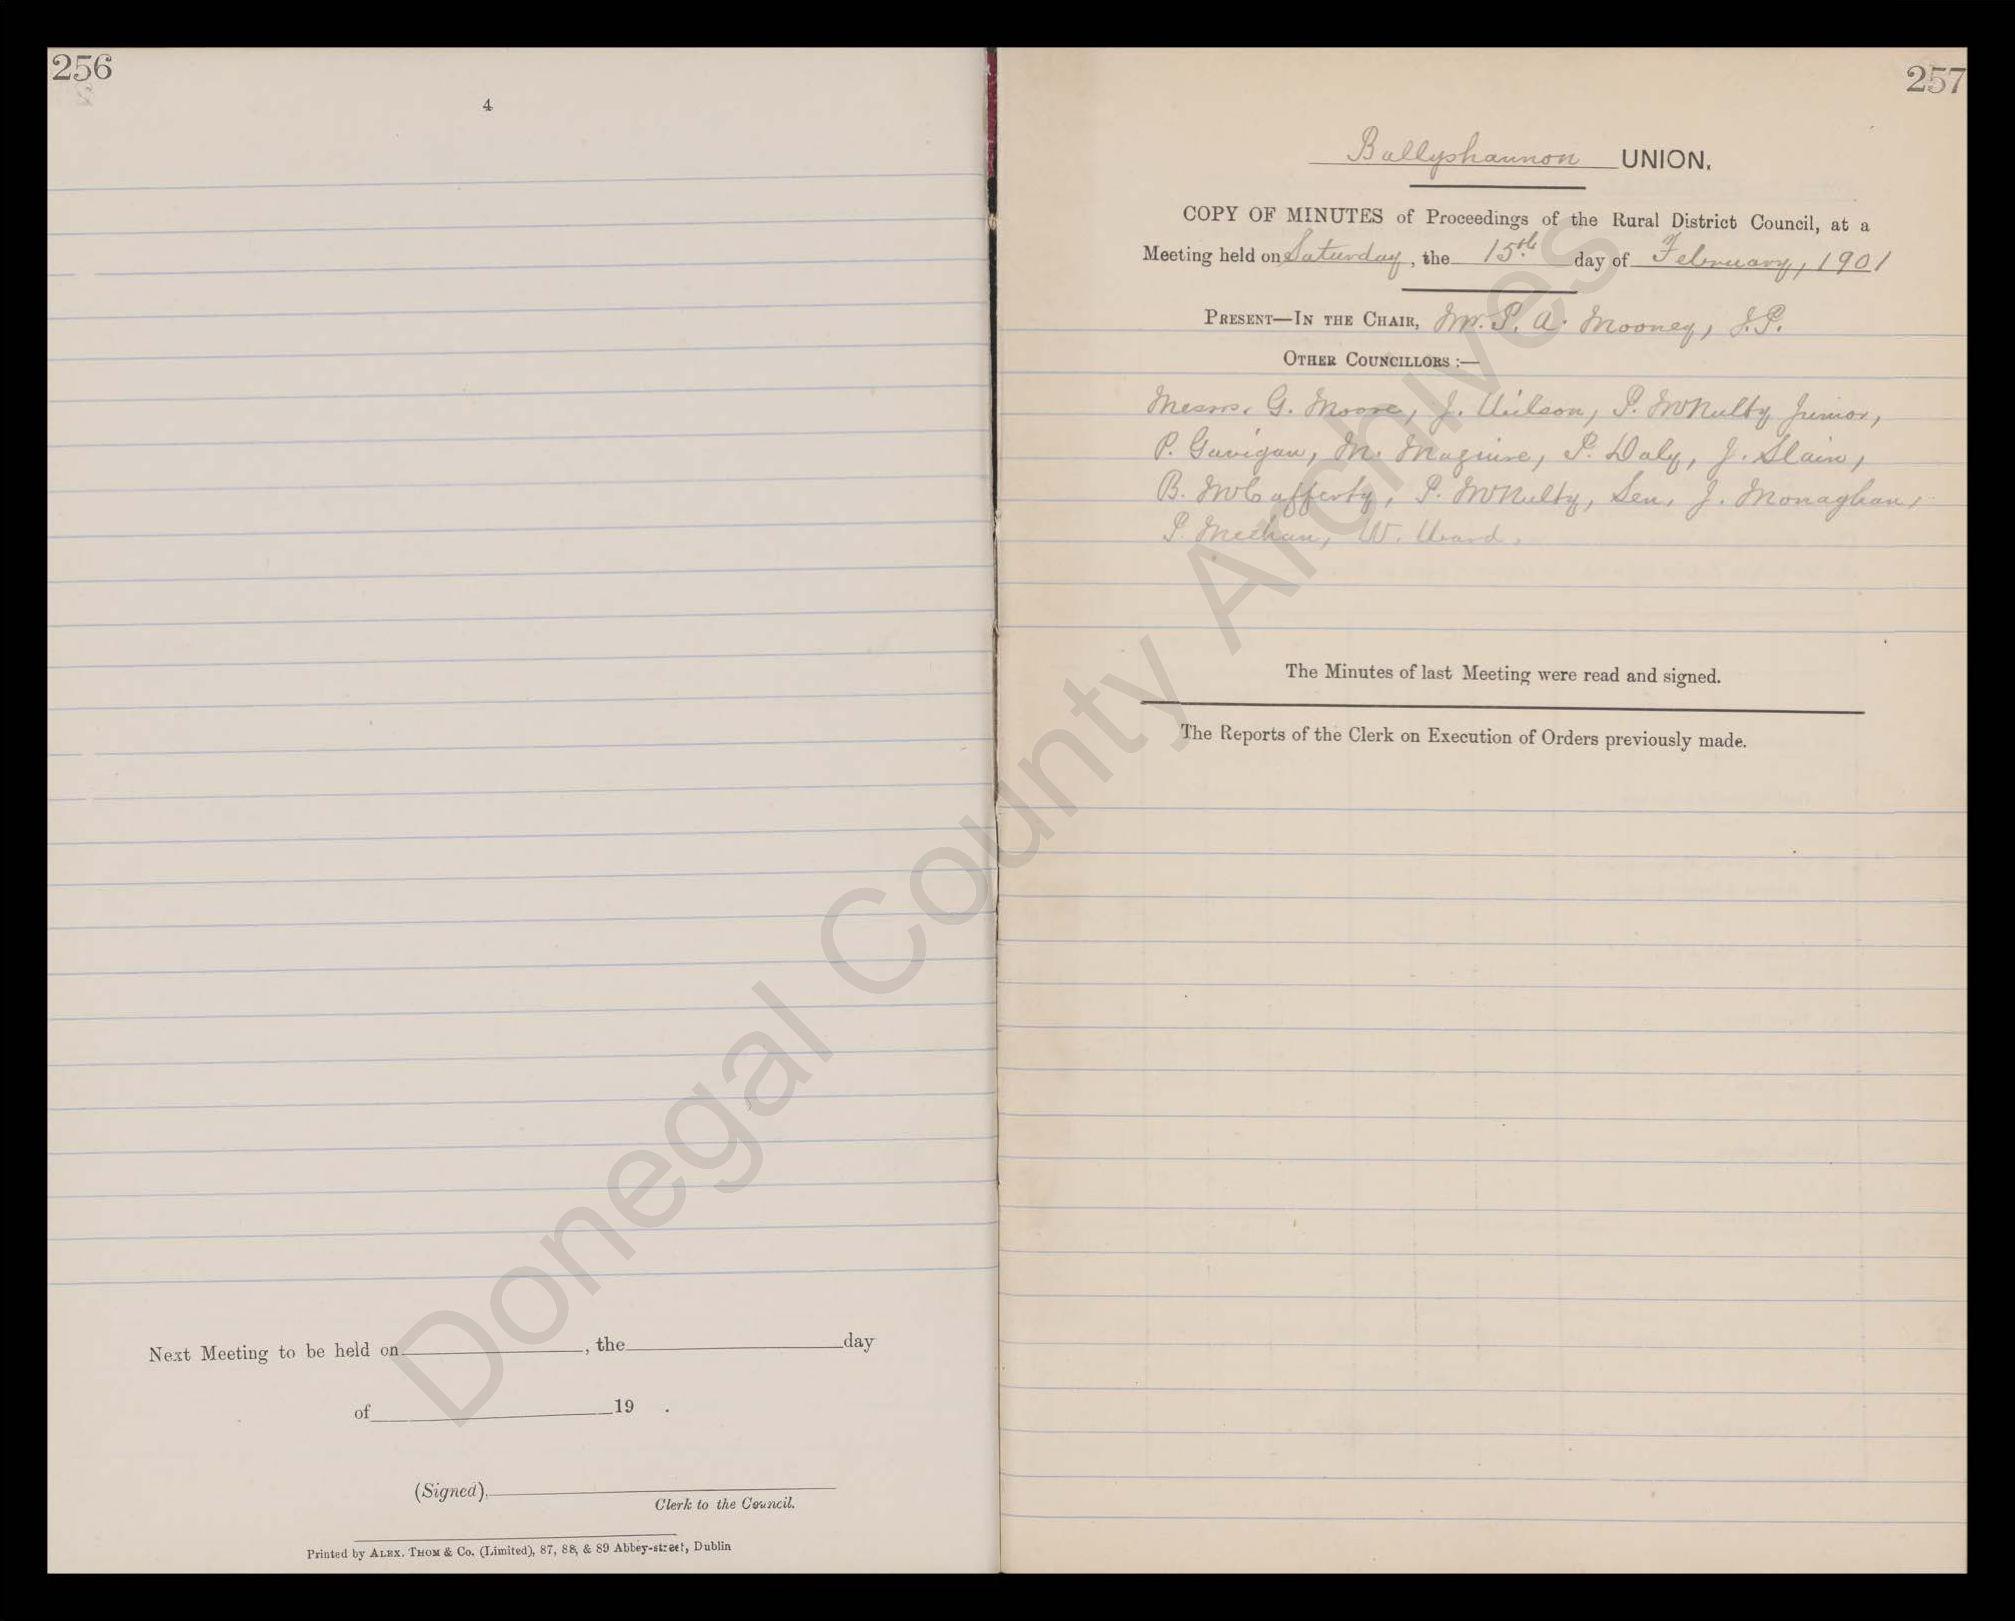 256
4
Next Meeting to be held on , the day
of 19 .
(Signed)
Clerk to the Council.
Printed by ALEX. THOM & Co. (Limited), 87, 88, & 89 Abbey-street, Dublin
257
Ballyshannon UNION.
COPY OF MINUTES of Proceedings of the Rural District Council, at a
Meeting held on Saturday, the 15th day of February, 1901
PRESENT—IN THE CHAIR, Mr. P. A. Mooney, J.P.
OTHER COUNCILLORS :—
Messrs. G. Moore, J. Wilson, P. McNulty Junior,
P. Gavigan, M. Maguire, P. Daly, J. Slain,
B. McCafferty, P. McNulty, Sen, J. Monaghan,
P. Meehan, W. Ward.
The Minutes of last Meeting were read and signed.
The Reports of the Clerk on Execution of Orders previously made.
Donegal County Archives